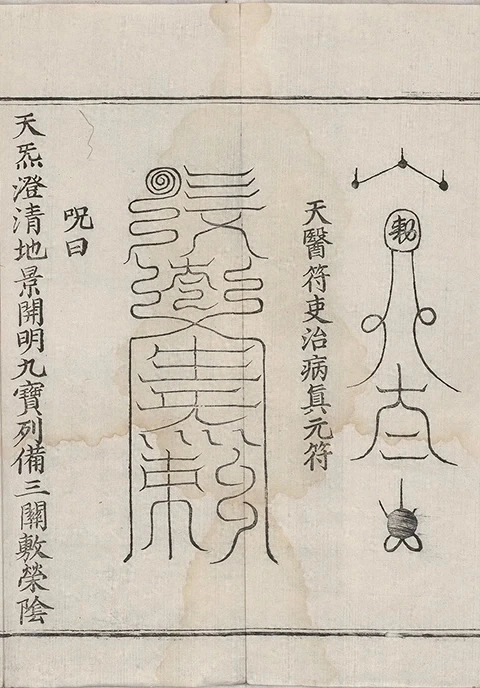 勅
天醫符吏治病眞元符
呪曰
天炁澄清地景開明九寶列備三關敷榮陰